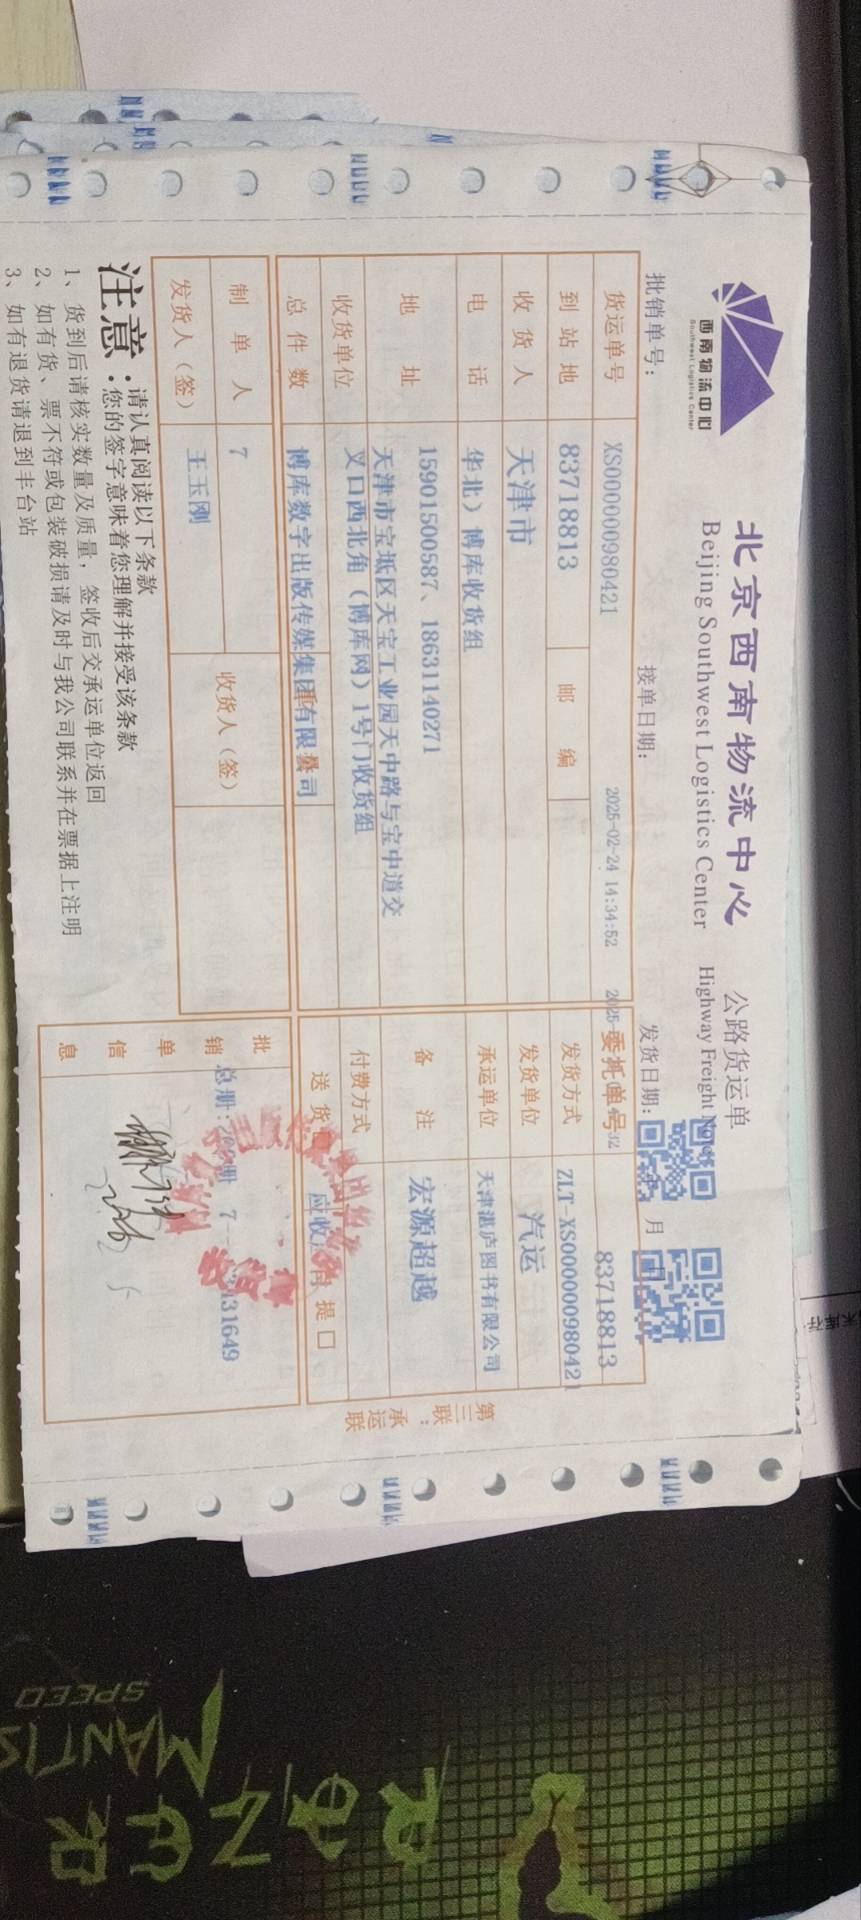 西南物流中心
Southwest Logistics Center
北京西南物流中心 公路货运单
Beijing Southwest Logistics Center Highway Freight
批销单号： 接单日期： 发货日期： 月
2025-02-24 14:34:52
货运单号 XS000000980421 委托单号 83718813
到站地 83718813 邮编 发货方式 ZLT-XS000000980421
收货人 天津市 发货单位 汽运
电话 华北）博库收货组 承运单位 天津湛庐图书有限公司
地址 15901500587、18631140271 备注 宏源超越
天津市宝坻区天宝工业园天中路与宝中道交
收货单位 叉口西北角（博库网）1号门收货组 付费方式
总件数 博库数字出版传媒集团有限公司 送货 应收 提 □
制单人 7 收货人（签） 批销单信息 总册： 册 7 31649
发货人（签） 王玉刚
第三联：承运联
注意：请认真阅读以下条款
您的签字意味着您理解并接受该条款
1、货到后请核实数量及质量，签收后交承运单位返回
2、如有货、票不符或包装破损请及时与我公司联系并在票据上注明
3、如有退货请退到丰台站
SPEED
MANTIS